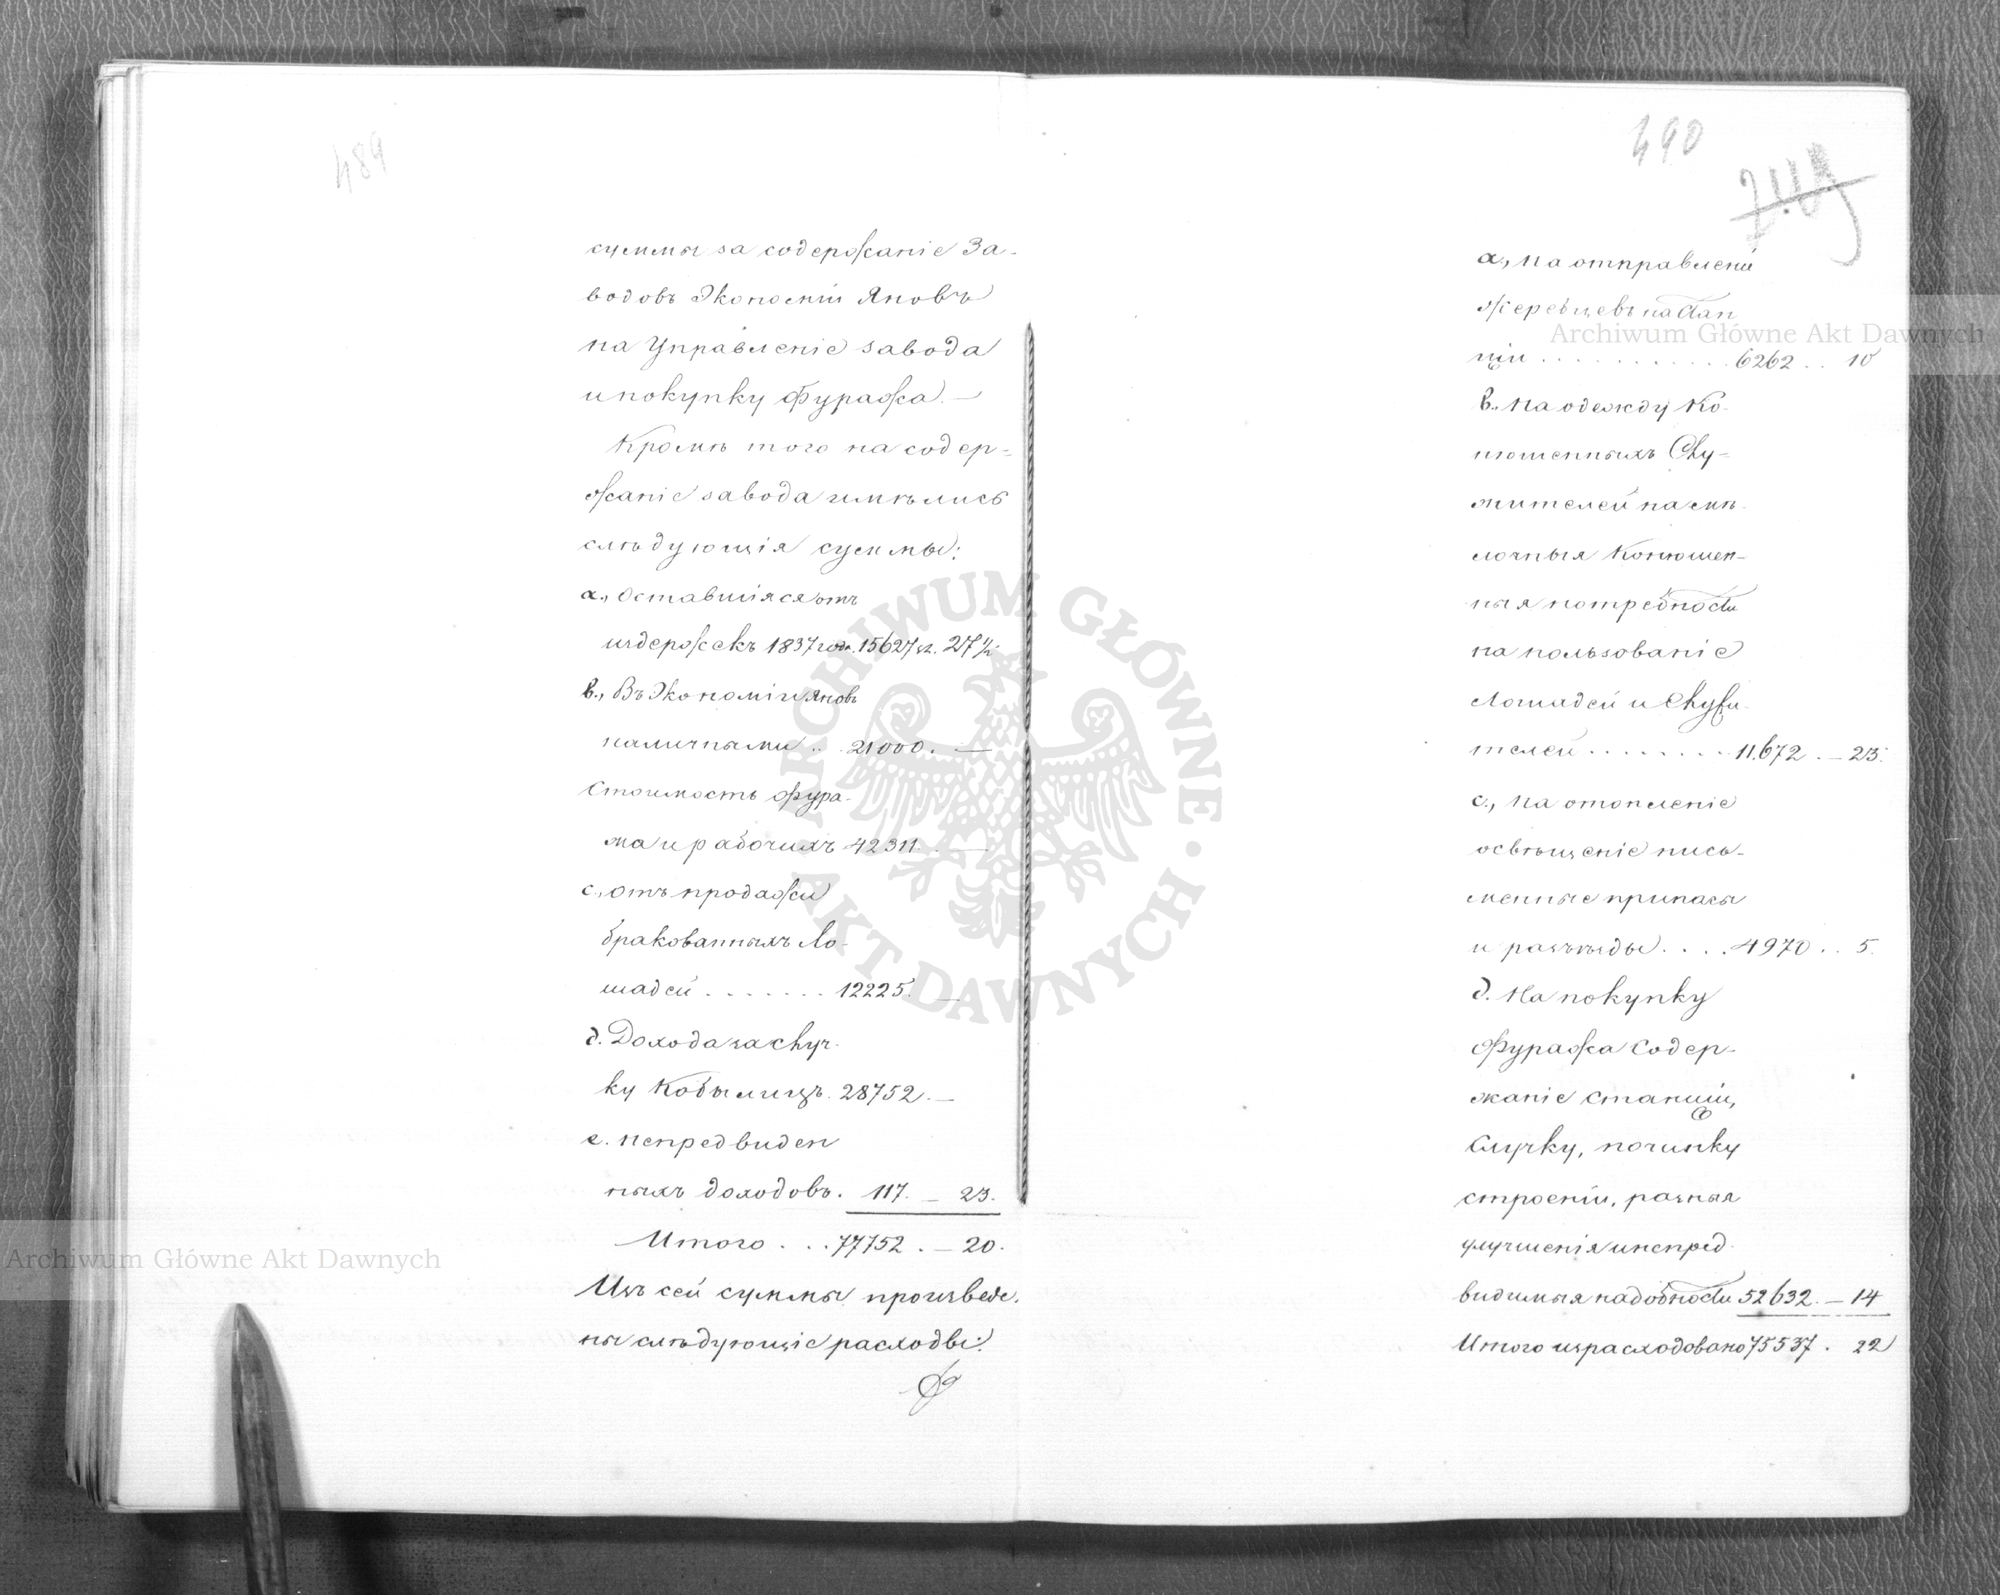 489
суммы за содержаніе За-
водовъ Экономіи Яновъ
на Управленіе завода
и покупку фуража. —
Кромѣ того на содер=
жаніе завода имѣлись
слѣдующія суммы:
а., Оставшіяся отъ
издержекъ 1837 года. 15627 зл. 27
в., Въ Экономіи Яновъ
наличными .. 21000. —
Стоимость фура-
жа и рабочихъ 42311. —
с., отъ продажи
бракованныхъ Ло-
шадей . . . . . . . 12225. —
д. Дохода за случ-
ку Кобылицъ. 28752. —
е. Непредвиден
ныхъ доходовъ. 117. — 23.
Итого . . . 77752. — 20.
Изъ сей суммы произведе-
ны слѣдующіе расходы:
490
а., на отправленіи
жеребцевъ на Стан
ціи . . . . . . . . . . . . 6262 .. 10
в., на одежду Ко-
нюшенныхъ Слу-
жителей на мѣ-
лочныя Конюшен-
ныя потребности
на пользованіе
Лошадей и Служи-
телей . . . . . . . . 11.672 . — 23.
с., на отопленіе
освѣщеніе пись-
менные припасы
и разъѣзды . . . . 4970 .. 5.
д. На покупку
Фуража Содер-
жаніе станціи,
Случку, починку
строеніи, разныя
улучшенія и непред-
видимыя надобности 52632. — 14
Итого израсходовано 75537 . 22
Archiwum Główne Akt Dawnych
Archiwum Główne Akt Dawnych
ARCHIWUM GŁÓWNE • AKT DAWNYCH •